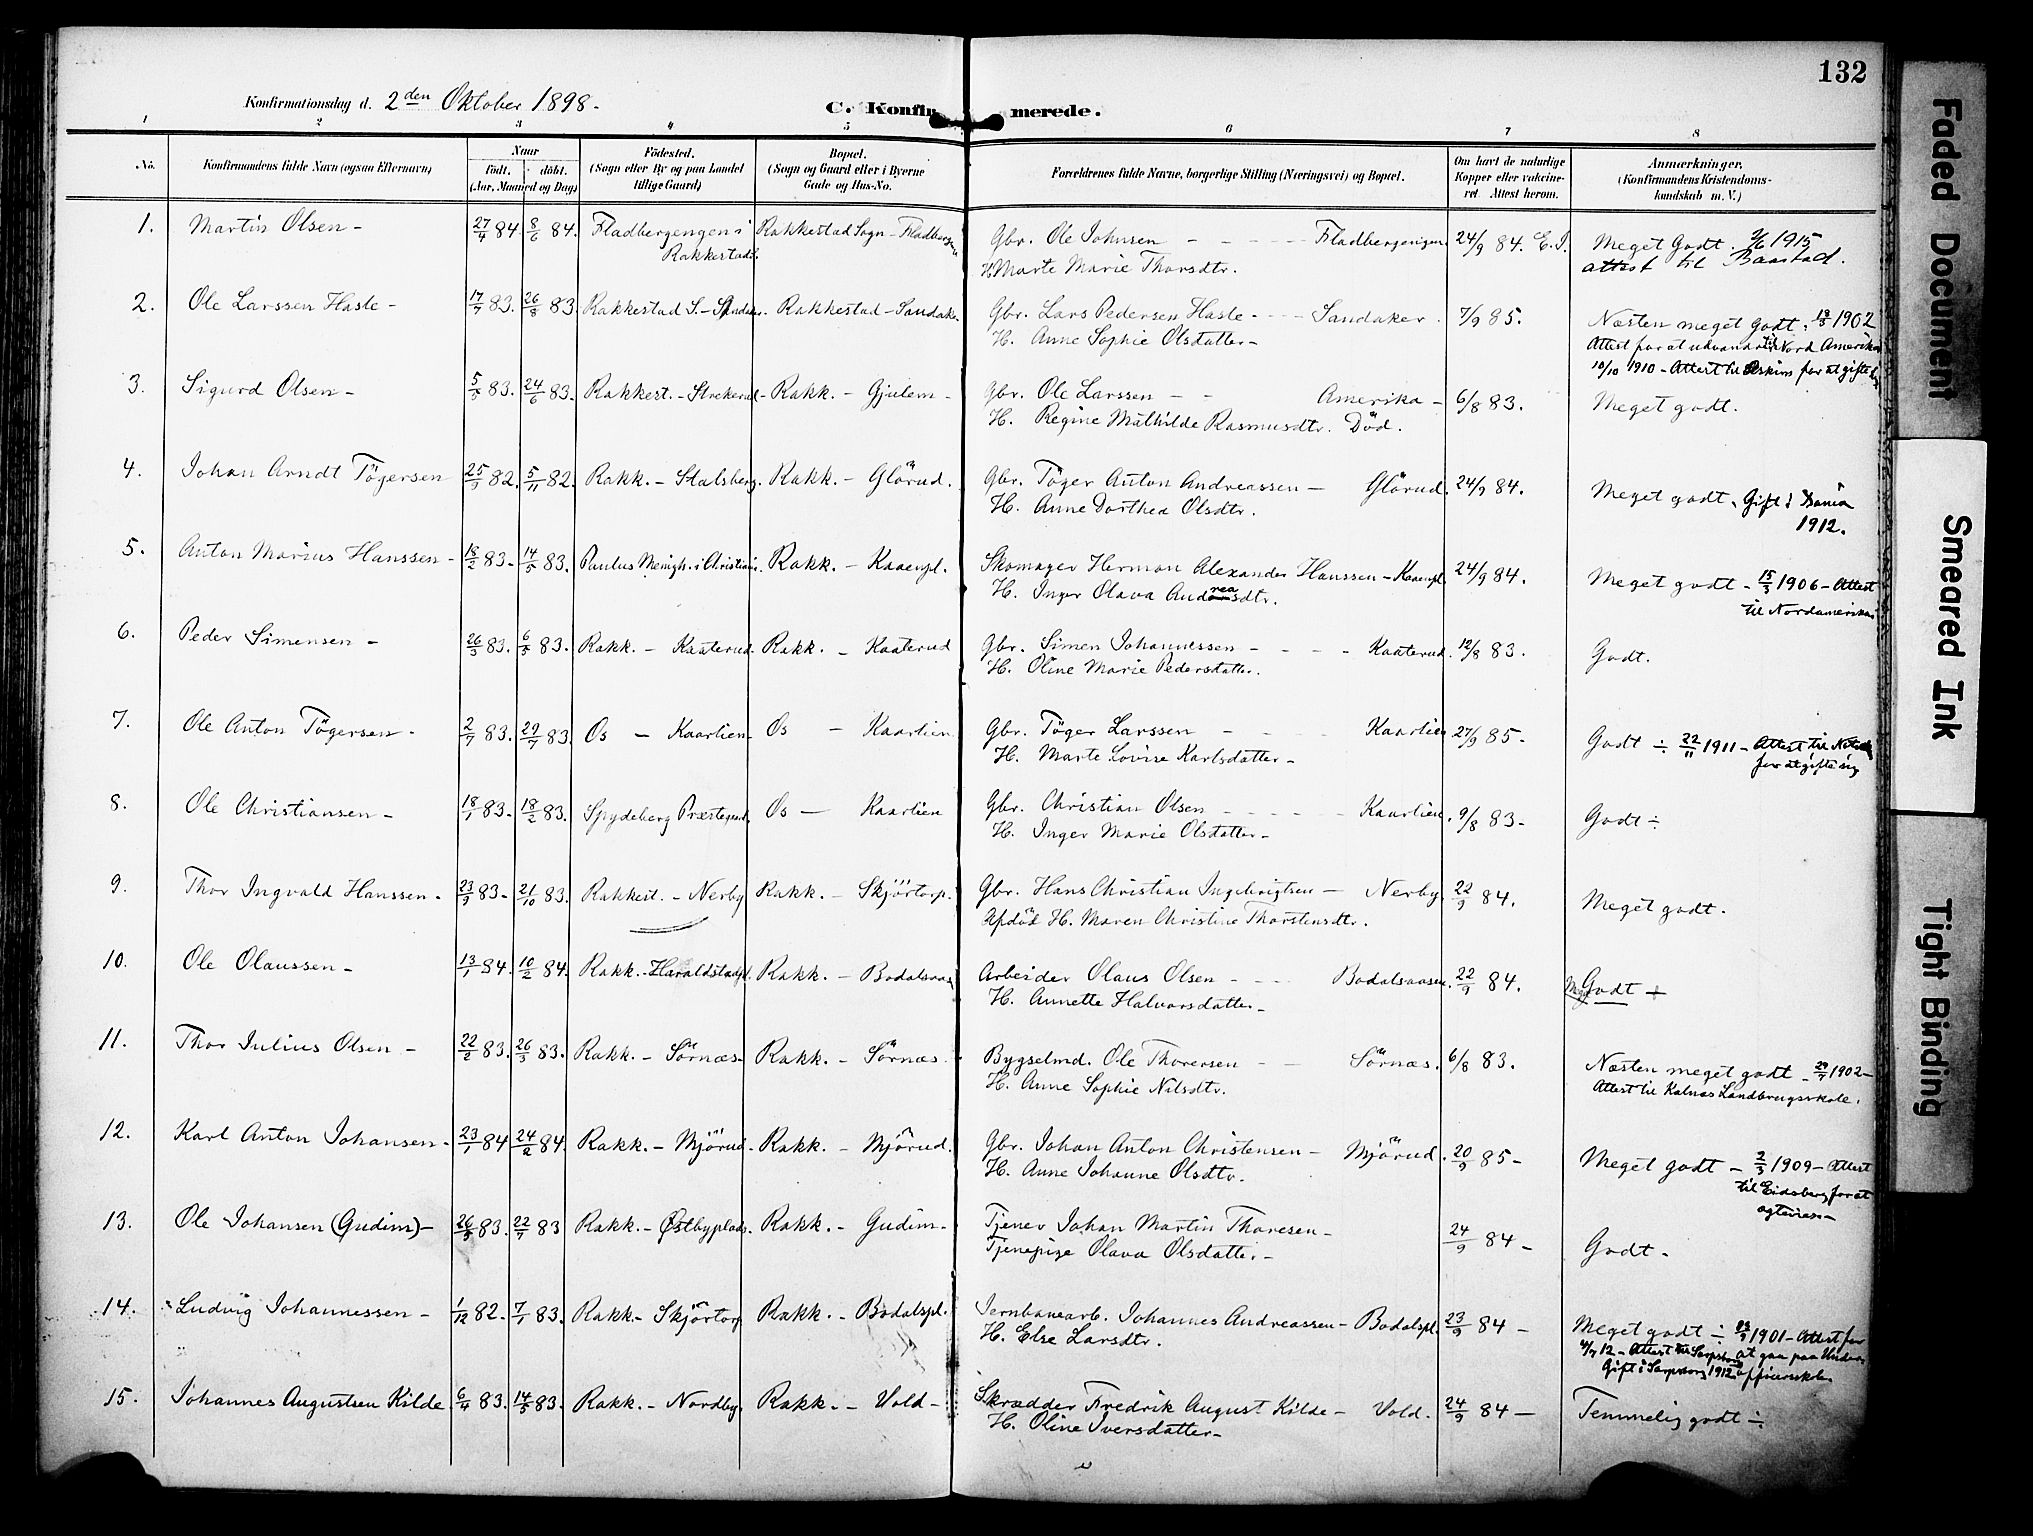 132
Konfirmationsdag d. 2den Oktober 1898.
C. Konfirmerede.
1 2 3 4 5 6 7 8
No. Konfirmandens fulde Navn (ogsaa Efternavn) Naar født. døbt. (Aar, Maaned og Dag) Fødested. (Sogn eller By og paa Landet tillige Gaard) Bopæl. (Sogn og Gaard eller i Byerne Gade og Hus-No. Forældrenes fulde Navne, borgerlige Stilling (Næringsvei) og Bopæl. Om havt de naturlige Kopper eller vakcineret. Attest herom. Anmærkninger. (Konfirmandens Kristendomskundskab m. V.)
1. Martin Olsen - 27/4 84 8/6 84. Fladbergengen i Rakkestad S. Rakkestad Sogn - Fladbergengen
Gbr. Ole Johnsen - - - - Fladbergengen 24/9 84. E.J. Meget Godt. 1915
H. Marte Marie Thorsdtr. attest til Baastad.
2. Ole Larssen Hasle - 17/7 83. 26/8 83. Rakkestad S. - Sandaker. Rakkestad - Sandaker
Gbr. Lars Pedersen Hasle - - - Sandaker. 7/9 85. Næsten meget godt. 1902
H. Anne Sophie Olsdatter - Attest for at udvandre til Nord Amerika
10/10 1910 - Attest til Askim for at gifte sig
3. Sigurd Olsen - 5/5 83. 24/6 83. Rakkest. - Strekerud - Rakk. - Gjulem -
Gbr. Ole Larssen - - Amerika - 6/8 83. Meget godt.
H. Regine Mathilde Rasmusdtr. Död.
4. Johan Arndt Tögersen 25/9 82. 5/11 82. Rakk. - Stalsberg. Rakk. - Glörud.
Gbr. Töger Anton Andreassen - Glörud. 24/9 84. Meget godt. Gift i
H. Anne Dorthea Olsdtr. 1912.
5. Anton Marius Hanssen - 18/2 83. 14/5 83. Paulus Menigh. i Christiania. Rakk. - Kaaenpl.
Skomager Herman Alexander Hanssen - Kaaenpl. 24/9 84. Meget godt - 15/3 1906 - Attest
H. Inger Olava Andreasdtr. til Nordamerika
6. Peder Simensen - 26/3 83. 6/5 83. Rakk. - Kaaterud. Rakk. - Kaaterud
Gbr. Simen Johannessen - - - - Kaaterud. 12/8 83. Godt.
H. Oline Marie Pedersdatter.
7. Ole Anton Tögersen - 2/7 83. 29/7 83. Os - Kaarlien - Os - Kaarlien
Gbr. Töger Larssen - - - Kaarlien 27/9 85. Godt ÷ 22/11 1911 - Attest til
H. Marte Lovise Karlsdatter - for at gifte sig
8. Ole Christiansen - 18/1 83. 18/2 83. Spydeberg Præstegaard. Os - Kaarlien
Gbr. Christian Olsen - - - - Kaarlien. 9/8 83 - Godt ÷
H. Inger Marie Olsdatter -
9. Thor Ingvald Hanssen - 23/9 83 - 21/10 83. Rakkest. - Nerby Rakk. - Skjörtorp.
Gbr. Hans Christian Ingebrigtsen - Nerby 22/9 84. Meget godt.
Afdöd H. Maren Christine Thorstensdtr.
10. Ole Olaussen - 13/1 84. 10/2 84. Rakk. - Haraldstadpl. Rakk. - Bodalsaasen
Arbeider Olaus Olsen - - - Bodalsaasen. 22/9 84. Meget Godt +
H. Annette Halvorsdatter -
11. Thor Julius Olsen - 22/2 83. 26/3 83. Rakk. - Sörnæs - Rakk. - Sörnæs.
Bygselmd. Ole Thoresen - - Sörnæs. 6/8 83. Næsten meget godt - 29/7 1902 -
H. Anne Sophie Nilsdtr. Attest til Kalnæs Landbrugsskole.
12. Karl Anton Johansen - 23/1 84 24/2 84. Rakk. - Mjörud. Rakk. - Mjörud.
Gbr. Johan Anton Christensen - Mjörud. 20/9 85 - Meget godt - 2/3 1909 - Attest
H. Anne Johanne Olsdtr. til Eidsberg for at
ægtevies -
13. Ole Johansen (Gudim) - 26/5 83. 22/7 83 Rakk. - Østbyplads. Rakk. - Gudim -
Tjener Johan Martin Thoresen - 24/9 84 - Godt -
Tjenepige Olava Olsdatter -
14. Ludvig Johannessen - 1/12 82. 7/1 83. Rakk. - Skjörtorp Rakk. - Bodalspl.
Jernbanearb. Johannes Andreassen - Bodalspl. 23/9 84 - Meget godt ÷ 1901 - Attest for
H. Else Larsdtr. 12 - Attest til Sarpsborg at gaa paa Under-
Gift i Sarpsborg 1912 officerskole
15. Johannes Augustsen Kilde 6/4 83. 14/5 83. Rakk. - Nordby. Rakk. - Vold -
Skrædder Fredrik August Kilde - Vold. 24/9 84 - Temmelig godt ÷
H. Oline Iversdatter -
Faded Document
Smeared Ink
Tight Binding